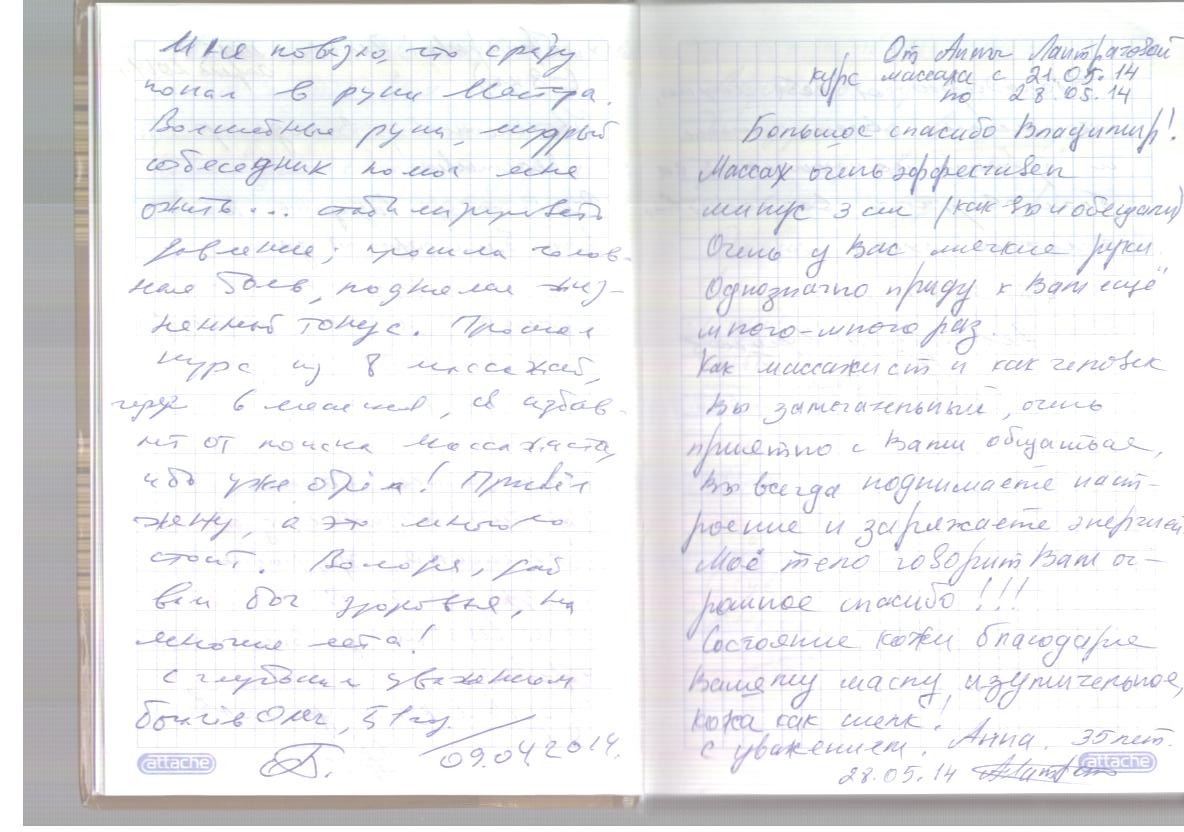 Мне повезло, что сразу
попал в руки Мастера.
Волшебные руки, мудрый
собеседник помог мне
ожить... стабилизировать
давление; прошла голов-
ная боль, поднялся жиз-
ненный тонус. Прошел
курс из 8 массажей,
через в месяцев, избав-
от поиска массажиста,
ибо уже обрёл! Привёл
жену, а это многого
стоит. Володя, дай
вам бог здоровья, на
многие лета!
С глубоким уважением
Олег, 51 год
09.04.2014.
attache
От Анны
курс массажа с 21.05.14
по 28.05.14
Большое спасибо Владимир!
Массаж очень эффективен
минус 3 см (как Вы и обещали)
Очень у Вас мягкие руки.
Однозначно приду к Вам ещё
много-много раз.
Как массажист и как человек
Вы замечательный, очень
приятно с Вами общаться,
Вы всегда поднимаете наст-
роение и заряжаете энергией.
Моё тело говорит Вам ог-
ромное спасибо!!!
Состояние кожи благодаря
Вашему маслу изумительное,
кожа как шелк!
С уважением, Анна. 35 лет.
28.05.14
attache